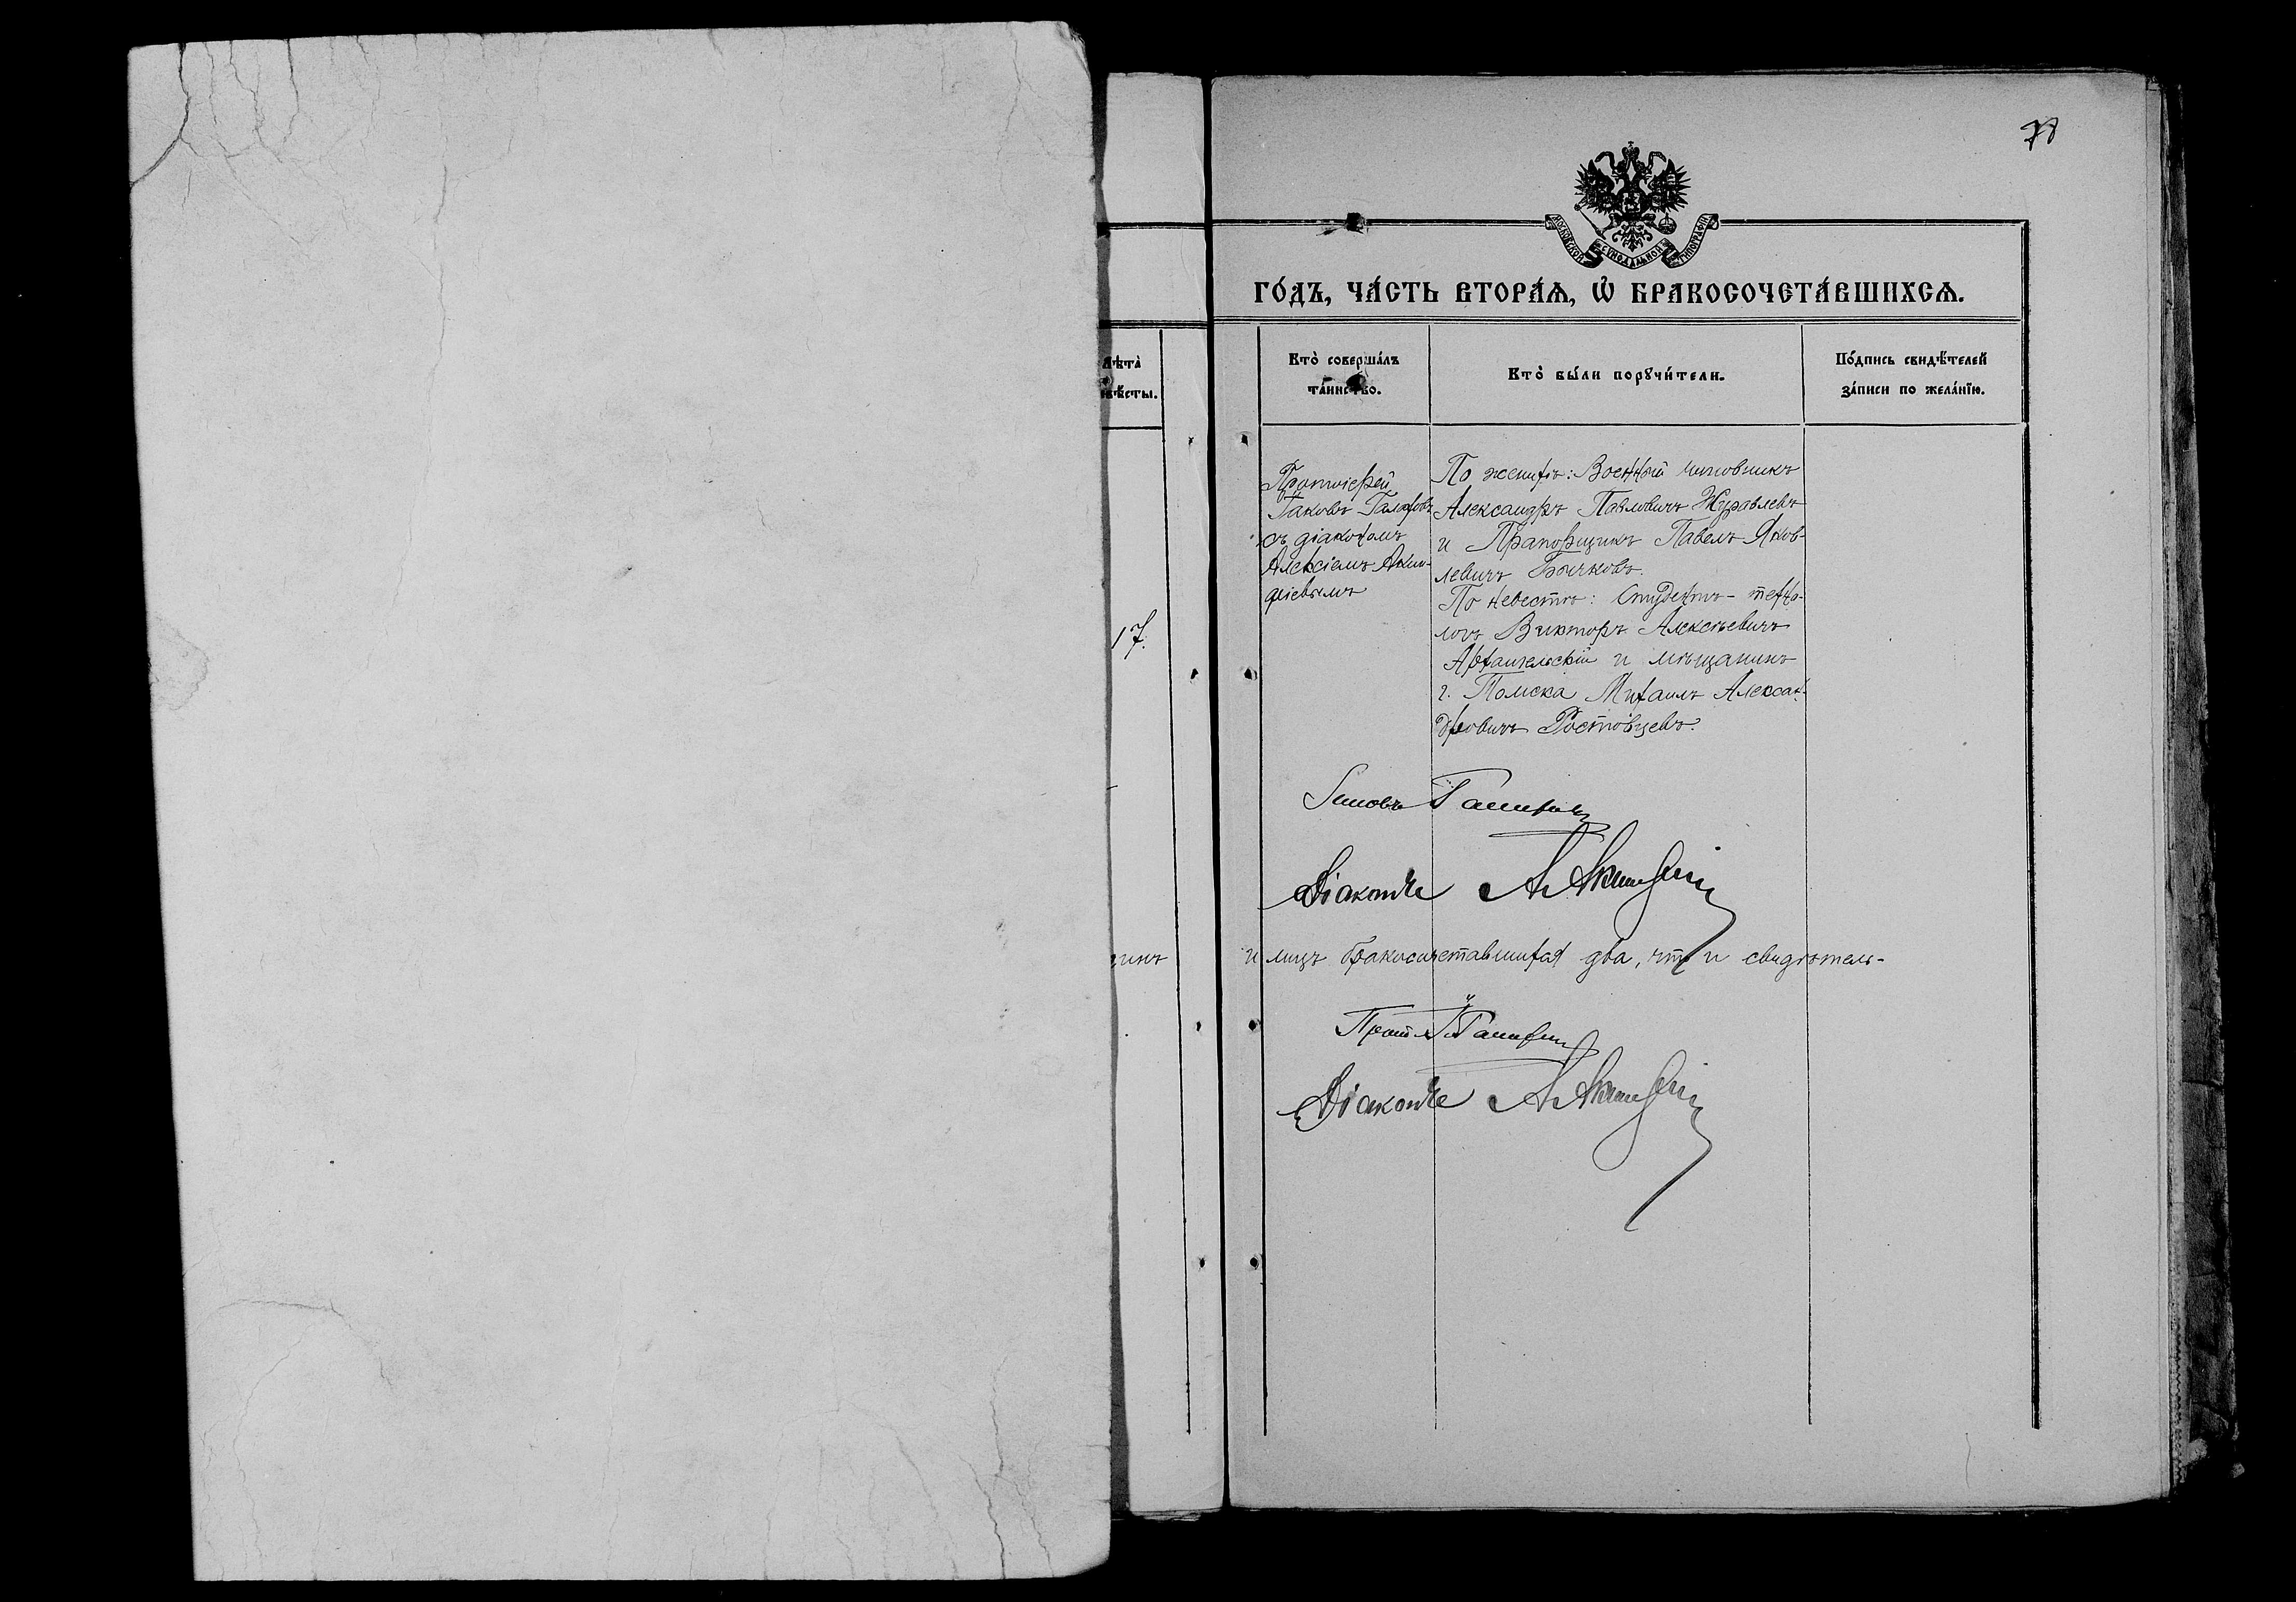 78
МОСКОВСКОЙ СѴНОДАЛЬНОЙ ТИПОГРАФІИ
ГО́ДЪ, ЧА́СТЬ ВТОРА́Я, Ѡ҆ БРАКОСОЧЕТА́ВШИХСЯ.
Лѣта̀
невѣ́сты.
Кто̀ соверша́лъ
та́инство.
Кто̀ бы́ли порꙋчи́тели.
По́дпись свидѣ́телей
за́писи по жела́нїю.
17.
Протоіерей
Іаковъ Галаховъ
съ діакономъ
Алексіемъ Акин-
діевымъ
По женихѣ: Военный чиновникъ
Александръ Павловичъ Журавлевъ
и Прапорщикъ Павелъ Яков-
левичъ Бычковъ.
По невестѣ: Студентъ-техно-
логъ Викторъ Алексѣевичъ
Архангельскій и мѣщанинъ
г. Томска Михаилъ Алексан-
дровичъ Ростовцевъ.
Іаковъ Галаховъ
Діаконъ А Акиндіи
и лицъ бракосочетавшихся два, что и свидѣтель-
Прот. І. Галахов
Діаконъ А Акиндіи